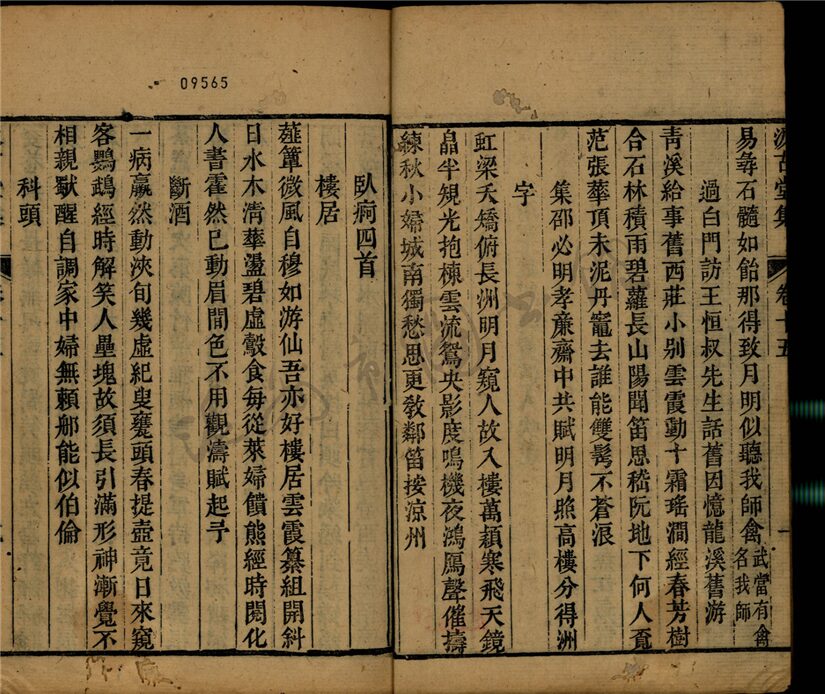 易彝石髓如飴那得致月明似聽我師禽武當有禽名我師
過白門訪王恒叔先生話舊因憶龍溪舊游
青溪給事舊西莊小别雲霞動十霜瑤澗經春芳樹
合石林積雨碧蘿長山陽聞笛思嵇阮地下何人覔
范張華頂未泥丹竈去誰能雙髩不蒼浪
集邵必明孝亷齋中共賦明月照高樓分得洲
字
虹梁夭矯俯長洲明月窺人故入樓萬頴寒飛天鏡
皛半規光抱棟雲流鴛央影度鳴機夜鴻鴈聲催擣
練秋小婦城南獨愁思更敎鄰笛按涼州
臥痾四首
樓居
薤簟微風自穆如游仙吾亦好樓居雲霞纂組開斜
日水木淸華盪碧虛鷇食每從萊婦饋熊經時閱化
人書霍然已動眉間色不用觀濤賦起予
斷酒
一病羸然動浹旬幾虛紀叟甕頭春提壺竟日來窺
客鸚鵡經時解笑人壘塊故須長引滿形神漸覺不
相親獃醒自調家中婦無賴郍能似伯倫
科頭
卷十五
一
09565